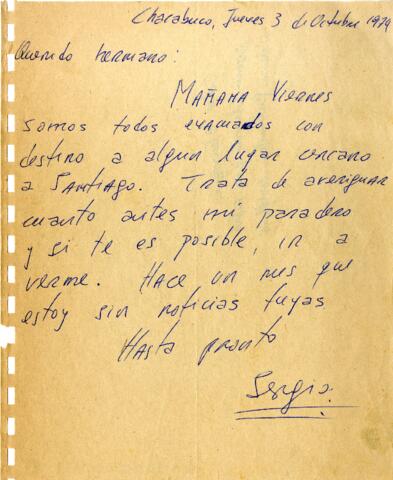 Chacabuco, Jueves 3 de Octubre 1974
Querido hermano:
MAÑANA Viernes
somos todos evacuados con
destino a algun lugar cercano
a SANTIAGO. Trata de averiguar
cuanto antes mi paradero
y si te es posible, ir a
verme. HACE un mes que
estoy sin noticias tuyas
HASTA pronto
Sergio.